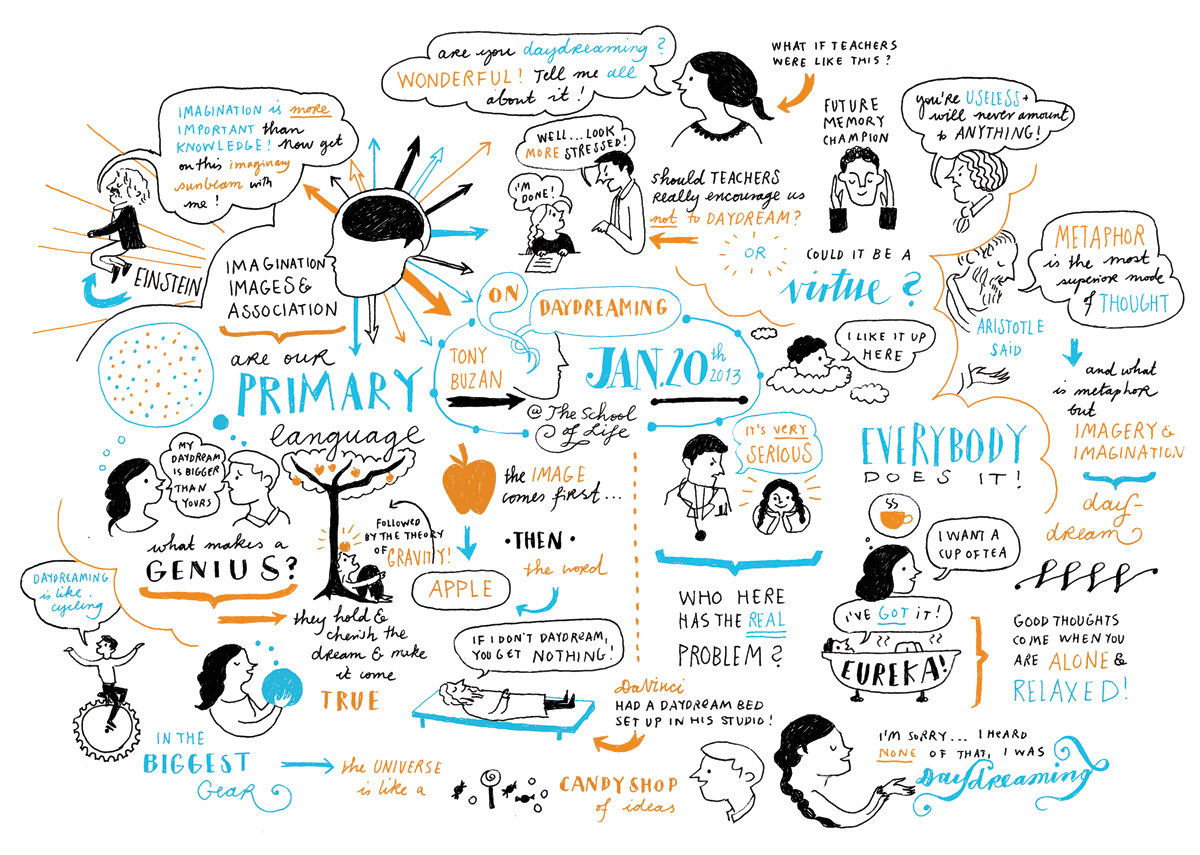 are you daydreaming?
WONDERFUL! Tell me all
about it!
WHAT IF TEACHERS
WERE LIKE THIS?
IMAGINATION is more
IMPORTANT than
KNOWLEDGE! Now get
on this imaginary
sunbeam with
me!
EINSTEIN
WELL... LOOK
MORE STRESSED!
I'M
DONE!
should TEACHERS
really encourage us
not to DAYDREAM?
OR
FUTURE
MEMORY
CHAMPION
you're USELESS +
will never amount
to ANYTHING!
COULD IT BE A
virtue?
METAPHOR
is the most
superior mode
of THOUGHT
ARISTOTLE
SAID
and what
is metaphor
but
IMAGERY &
IMAGINATION
day-
dream
IMAGINATION
IMAGES &
ASSOCIATION
are our
PRIMARY
language
ON
DAYDREAMING
TONY
BUZAN
JAN. 20th
2013
@ The School
of Life
I LIKE IT UP
HERE
EVERYBODY
DOES IT!
MY
DAYDREAM
IS BIGGER
THAN
YOURS
what makes a
GENIUS?
they hold &
cherish the
dream & make
it come
TRUE
FOLLOWED
BY THE THEORY
OF GRAVITY!
the IMAGE
comes first...
• THEN •
the word
APPLE
IT'S VERY
SERIOUS
WHO HERE
HAS THE REAL
PROBLEM?
I WANT A
CUP OF TEA
I'VE GOT IT!
EUREKA!
GOOD THOUGHTS
COME WHEN YOU
ARE ALONE &
RELAXED!
DAYDREAMING
is like
cycling
IN THE
BIGGEST
Gear
the UNIVERSE
is like a
CANDYSHOP
of ideas
IF I DON'T DAYDREAM,
YOU GET NOTHING!
DaVinci
HAD A DAYDREAM BED
SET UP IN HIS STUDIO!
I'M SORRY... I HEARD
NONE OF THAT, I WAS
Daydreaming